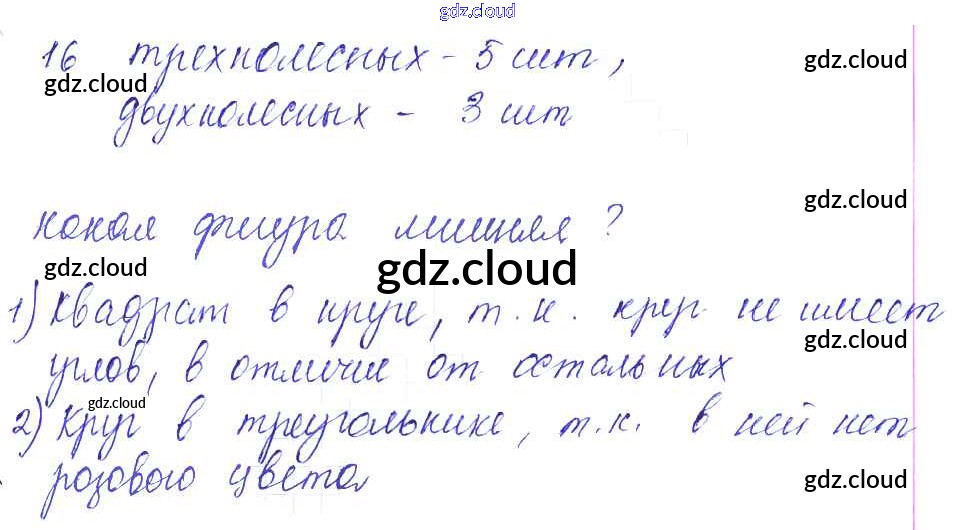 gdz.cloud
16 трехколесных - 5 шт,
gdz.cloud
gdz.cloud
двухколесных - 3 шт
gdz.cloud
какая фигура лишняя?
gdz.cloud
gdz.cloud
1) Квадрат в круге, т.к. круг не имеет
gdz.cloud
углов, в отличие от остальных
gdz.cloud
2) Круг в треугольнике, т.к. в ней нет
розового цвета
gdz.cloud